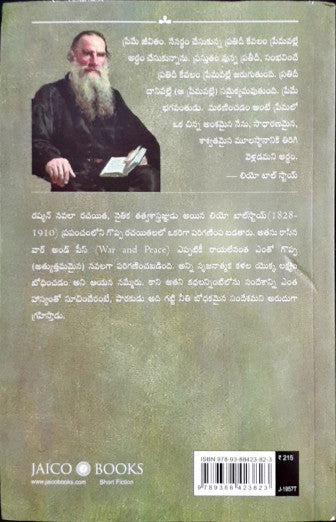 ప్రేమే జీవితం. నేనర్థం చేసుకున్న ప్రతిదీ కేవలం ప్రేమవల్లే
అర్థం చేసుకున్నాను. ప్రస్తుతం వున్న ప్రతిదీ, సంభవించే
ప్రతిదీ కేవలం ప్రేమవల్లే జరుగుతుంది. ప్రతిదీ
దానివల్లే (ఆ ప్రేమవల్లే) సమైక్యమవుతుంది. ప్రేమే
భగవంతుడు. మరణించడం అంటే ప్రేమలో
ఒక చిన్న అంశమైన నేను, సాధారణమైన,
శాశ్వతమైన మూలస్థానానికి తిరిగి
వెళ్లడమని అర్థం.
— లియో టాల్ స్టాయ్
రష్యన్ నవలా రచయిత, నైతిక తత్వశాస్త్రజ్ఞుడు అయిన లియో టాల్‌స్టాయ్ (1828-
1910) ప్రపంచంలోని గొప్ప రచయితలలో ఒకరిగా పరిగణింప బడతారు. ఆతను రాసిన
వార్ అండ్ పీస్ (War and Peace) ఎప్పటికీ రాయలేనంత ఎంతో గొప్ప
(అత్యుత్తమమైన) నవలగా పరిగణించబడింది. అన్ని సృజనాత్మక కళల యొక్క లక్ష్యం
బోధించడం అని ఆయన నమ్మేరు. కాని అతని కథలన్నింటిలోను సందేశాన్ని ఎంత
హాస్యంతో సూచించేరంటే, పాఠకుడు అది గట్టి నీతి బోధకమైన సందేశమని అరుదుగా
గ్రహిస్తాడు.
JAICO BOOKS
www.jaicobooks.com Short Fiction
ISBN 978-93-88423-82-3
9 789388 423823
₹ 215
J-1957T